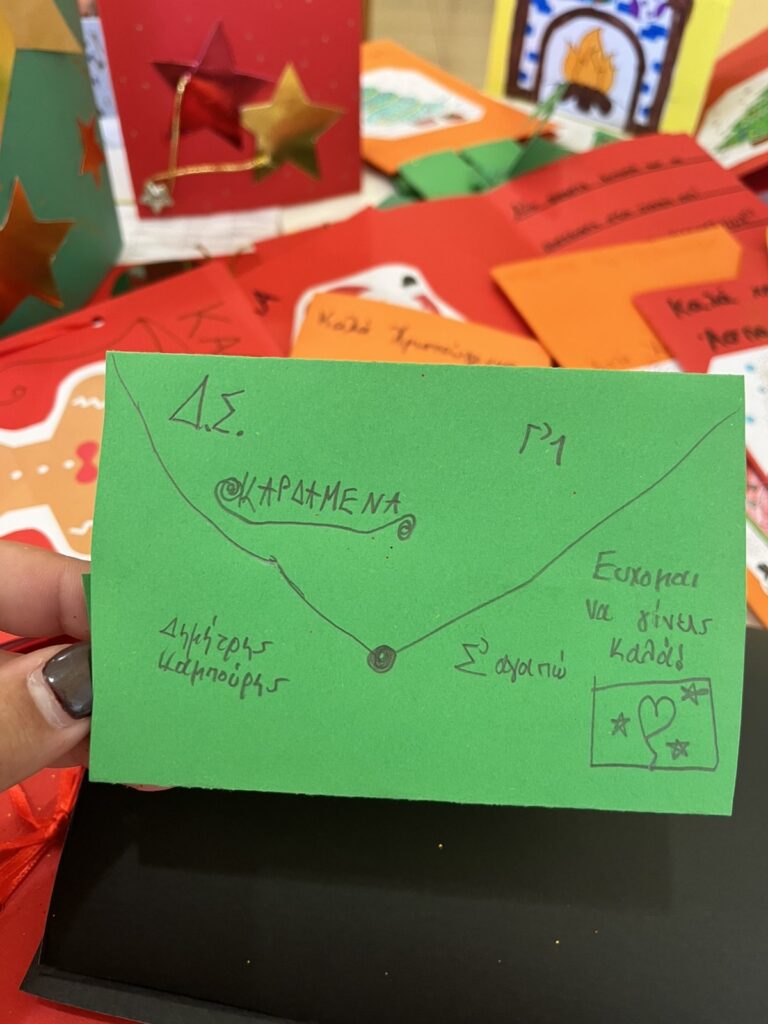 Δ.Σ.
Γ'1
ΚΑΡΔΑΜΕΝΑ
Δημήτρης
Καμπούρης
Σ'αγαπώ
Ευχομαι
να γίνεις
καλά!
Καλά Χριστούγεννα
Καλά
ΚΑ